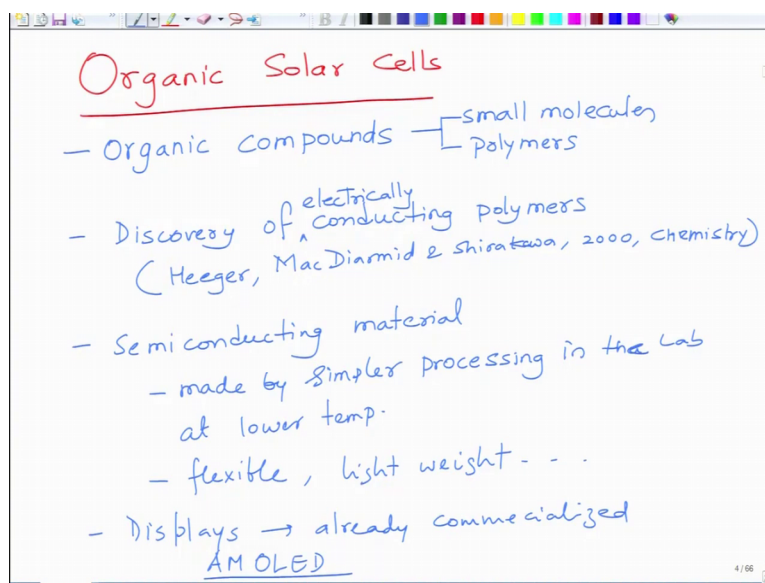 Organic Solar Cells
- Organic compounds small molecules
polymers
- Discovery of electrically conducting polymers
(Heeger, MacDiarmid & Shirakawa, 2000, Chemistry)
- Semiconducting material
- made by simpler processing in the Lab
at lower temp.
- flexible, light weight - - .
- Displays → already commecialized
AMOLED
4 / 66